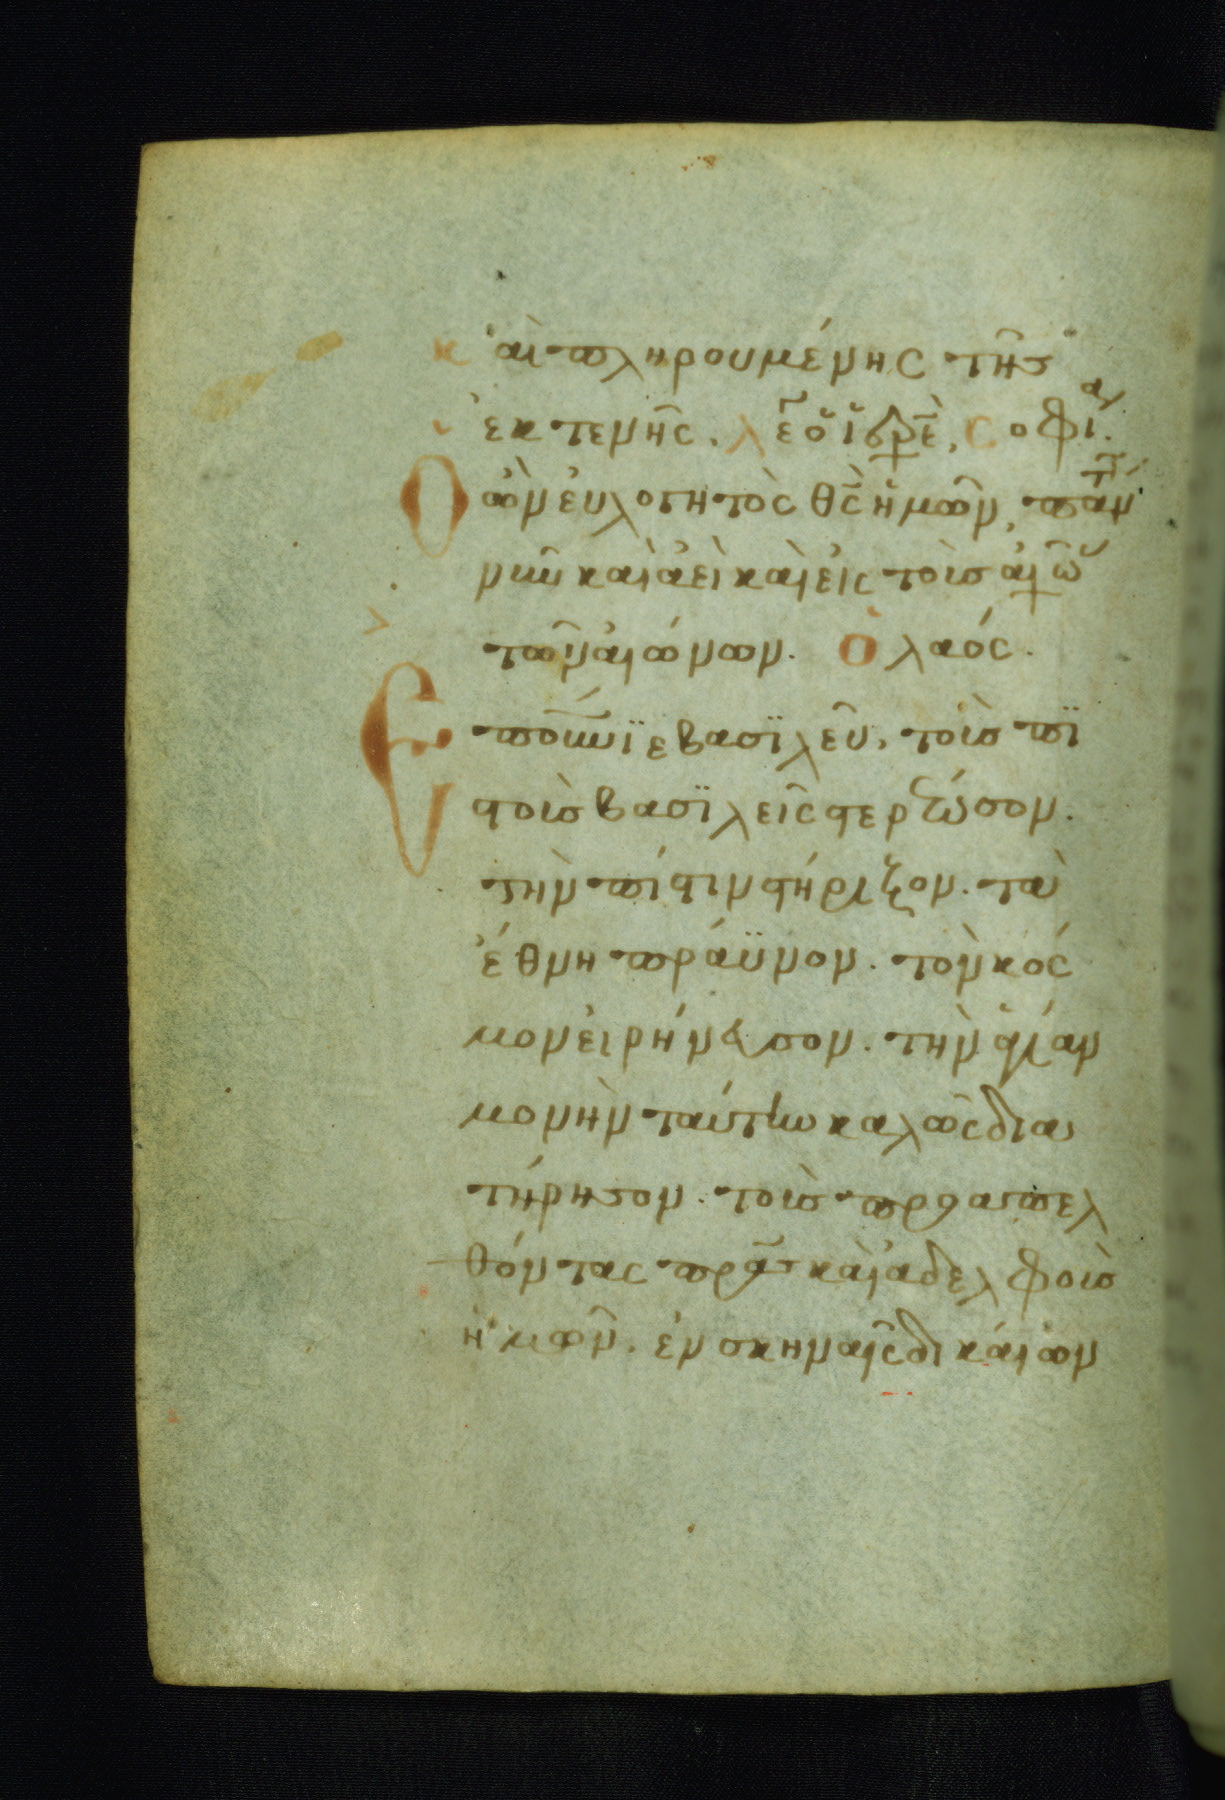 καὶ πληρουμένης τῆς
ἐκτενῆς. λέ ὁ ἱερε, Σοφία.
Ὁ ὢν εὐλογητὸς θς ἡμῶν, πάν
νῦν καὶ ἀεὶ καὶ εἰς τοὺς αἰῶ
τῶν αἰώνων. ὁ λαός.
Ἐπουνϊε βασϊλεῦ, τοὺς πϊ
στοὺς βασϊλεῖς στερέωσον.
τὴν πίστιν στήριξον. τὰ
ἔθνη πράϋνον. τὸν κόσ
μον εἰρήνευσον. τὴν ἁγίαν
μονὴν ταύτην καλῶς δια
τήρησον. τοὺς προαπελ
θόντας πρας καὶ ἀδελφοὺς
ἡμῶν. ἐν σκηναῖς δικαίων